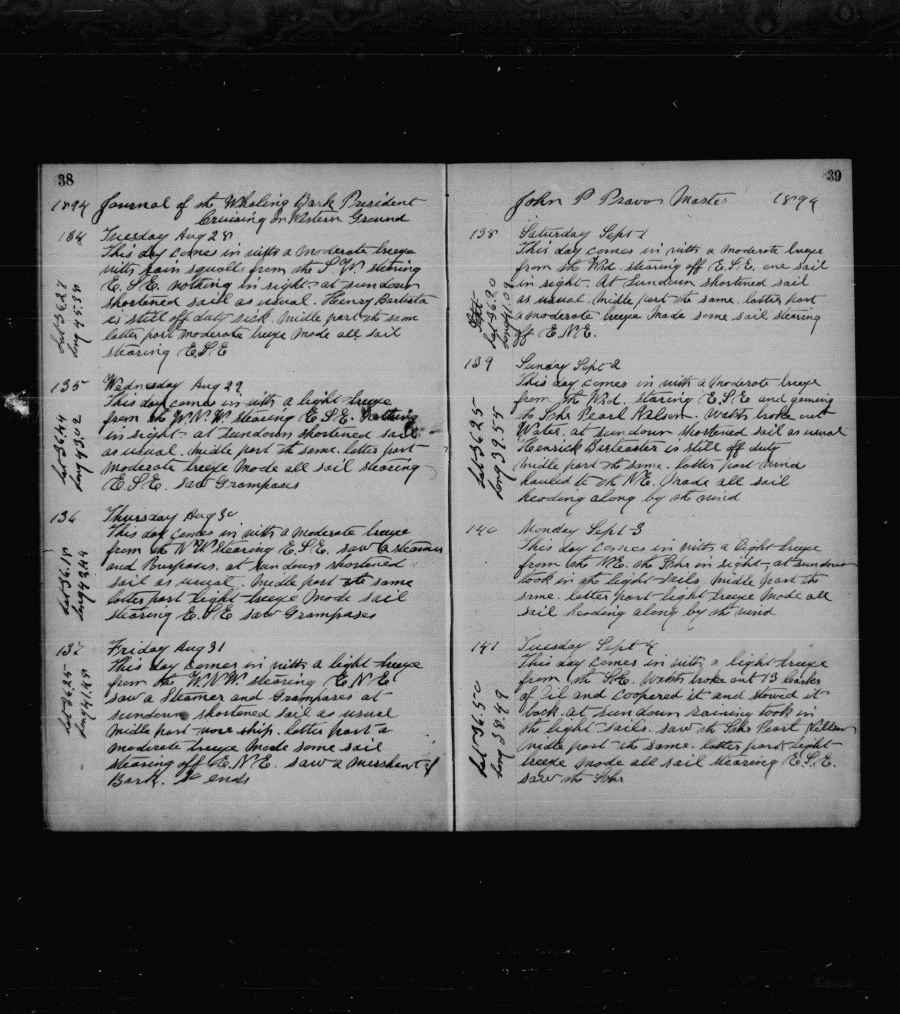 38
1894 Journal of the Whaling Bark President
Cruising on Western Ground
134 Tuesday Aug 28
This day comes in with a moderate breeze
with rain squalls from the S.W. stearing
E.S.E. nothing in sight. at sundown
shortened sail as usual. Henry
is still off duty sick. Midle part the same
latter part moderate breeze made all sail
stearing E.S.E
Lat 36.27
Long 45.38
135 Wednesday Aug 29
This day comes in with a light breeze
from the W.N.W. stearing E.S.E. Nothing
in sight at sundown shortened sail
as usual. Midle part the same. latter part
moderate breeze made all sail stearing
E.S.E. saw Grampases
Lat 36.44
Long 43.02
136 Thursday Aug 30
This day comes in with a moderate breeze
from the N.W. stearing E.S.E. saw a steamer
and Porpases. at sundown shortened
sail as usual. Midle part the same
latter part light breeze made sail
stearing E.S.E saw Grampases
Lat 36.18
Long 42.44
137 Friday Aug 31
This day comes in with a light breeze
from the W.N.W. stearing E.N.E
saw a Steamer and Grampases at
sundown shortened sail as usual
Midle part wore ship. latter part a
moderate breeze made some sail
stearing off E.N.E. saw a merchant
Bark. So ends
Lat 36.25
Long 41.48
39
John P Pravos Master 1894
138 Saturday Sept 1
This day comes in with a moderate breeze
from the Wd. stearing off E.S.E. one sail
in sight. At sundown shortened sail
as usual. Midle part the same. latter part
a moderate breeze made some sail stearing
off E.N.E.
Sept
Lat 36.20
Long 41.02
139 Sunday Sept 2
This day comes in with a moderate breeze
from the Wd. staring E.S.E and gaming
the Schr Pearl Nelson. Watts broke out
Water. at sundown shortened sail as usual
Henrick is still off duty
Midle part the same. latter part wind
hauled to the N.E. Made all sail
heading along by the wind
Lat 36.25
Long 39.55
140 Monday Sept 3
This day comes in with a light breeze
from the N.E. the Schr in sight. at sundown
took in the light sails. Midle part the
same. latter part light breeze made all
sail heading along by the wind
141 Tuesday Sept 4
This day comes in with a light breeze
from the S.E. Watts broke out 13
of Oil and coopered it and stowed it
back. at sundown raining took in
the light sails. saw the Schr Pearl Nelson
Midle part the same. latter part light
breeze made all sail stearing E.S.E.
saw the Schr
Lat 36.50
Long 38.49